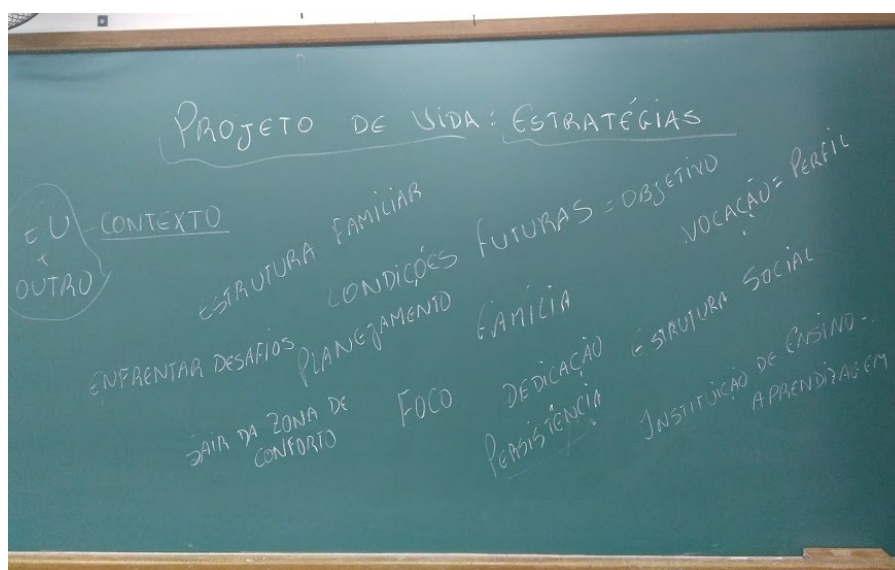 PROJETO DE VIDA: ESTRATÉGIAS
EU
+
OUTRO
CONTEXTO
ESTRUTURA FAMILIAR
CONDIÇÕES FUTURAS = OBJETIVO
VOCAÇÃO = PERFIL
ENFRENTAR DESAFIOS
PLANEJAMENTO
FAMÍLIA
ESTRUTURA SOCIAL
SAIR DA ZONA DE
CONFORTO
FOCO
DEDICAÇÃO
PERSISTÊNCIA
INSTITUIÇÃO DE ENSINO-
APRENDIZAGEM